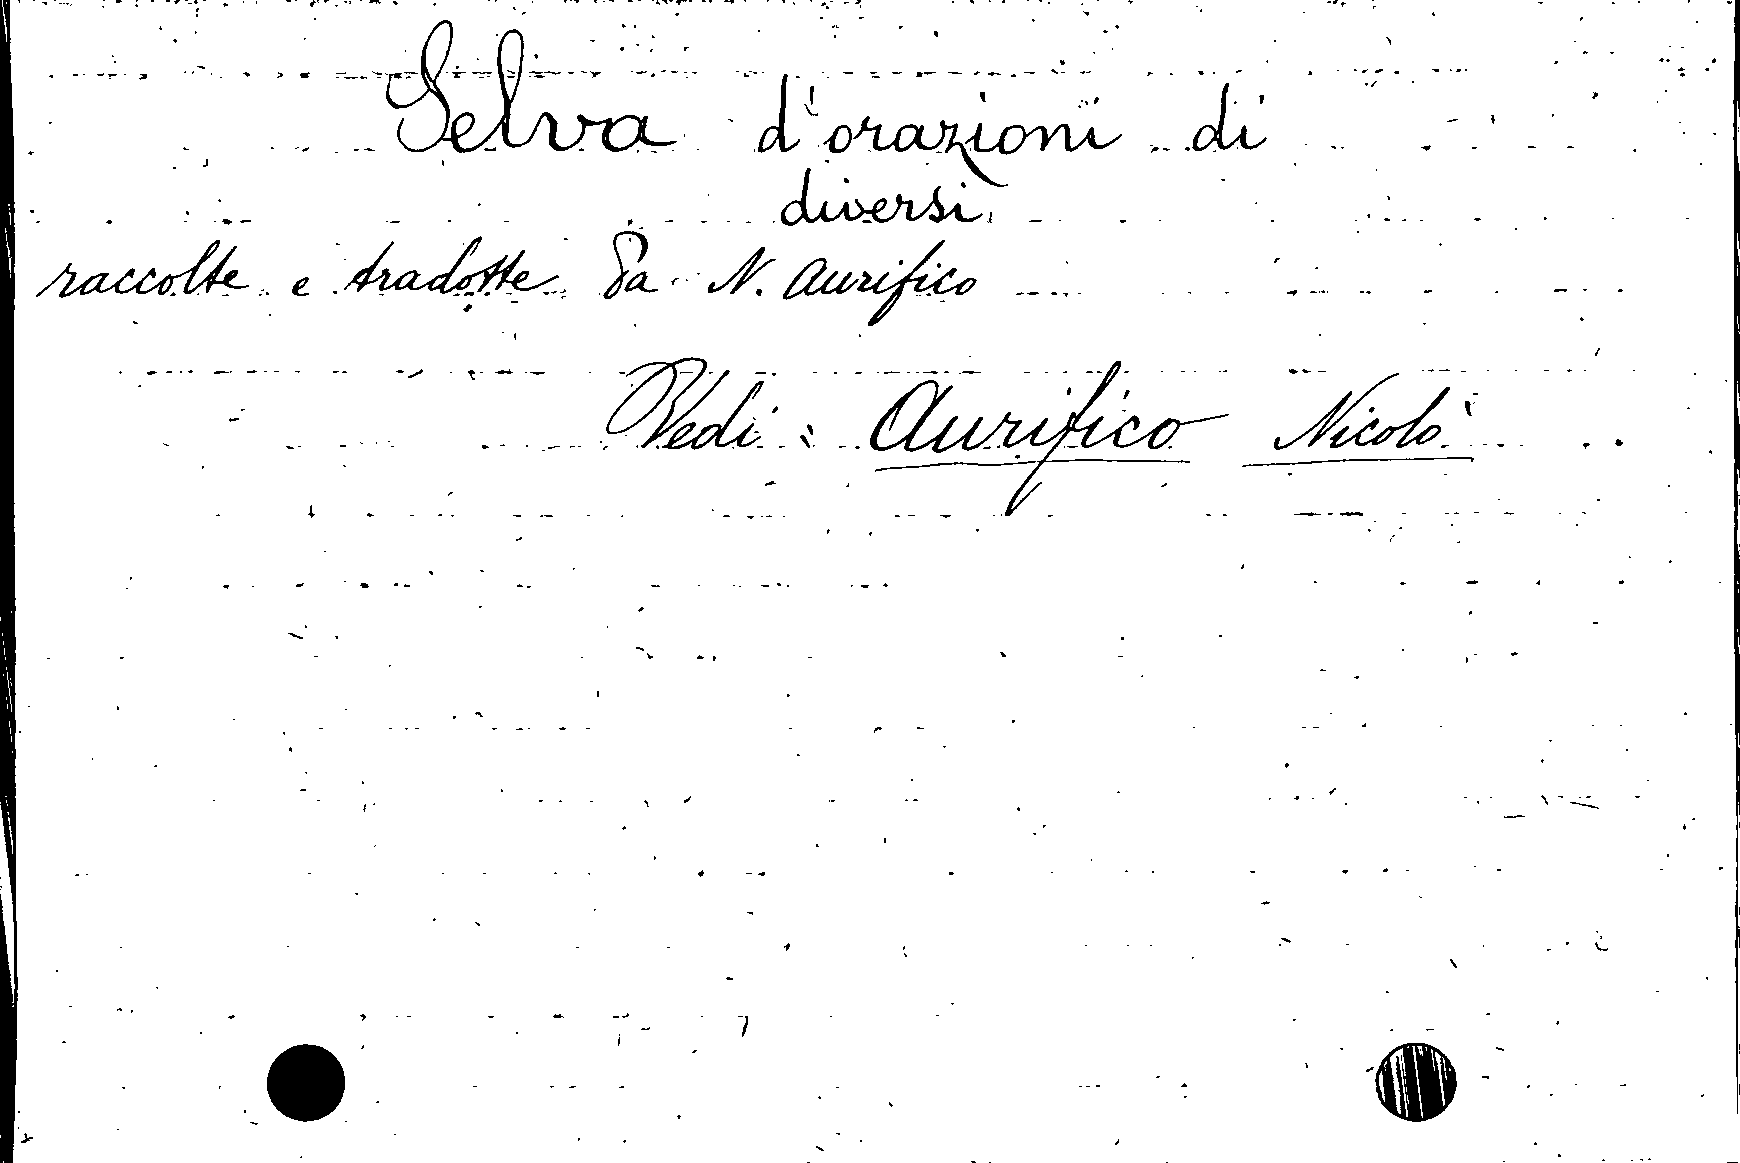 Selva d'orazioni di
diversi
raccolte e tradotte da N. Aurifico
Vedi: Aurifico Nicolò